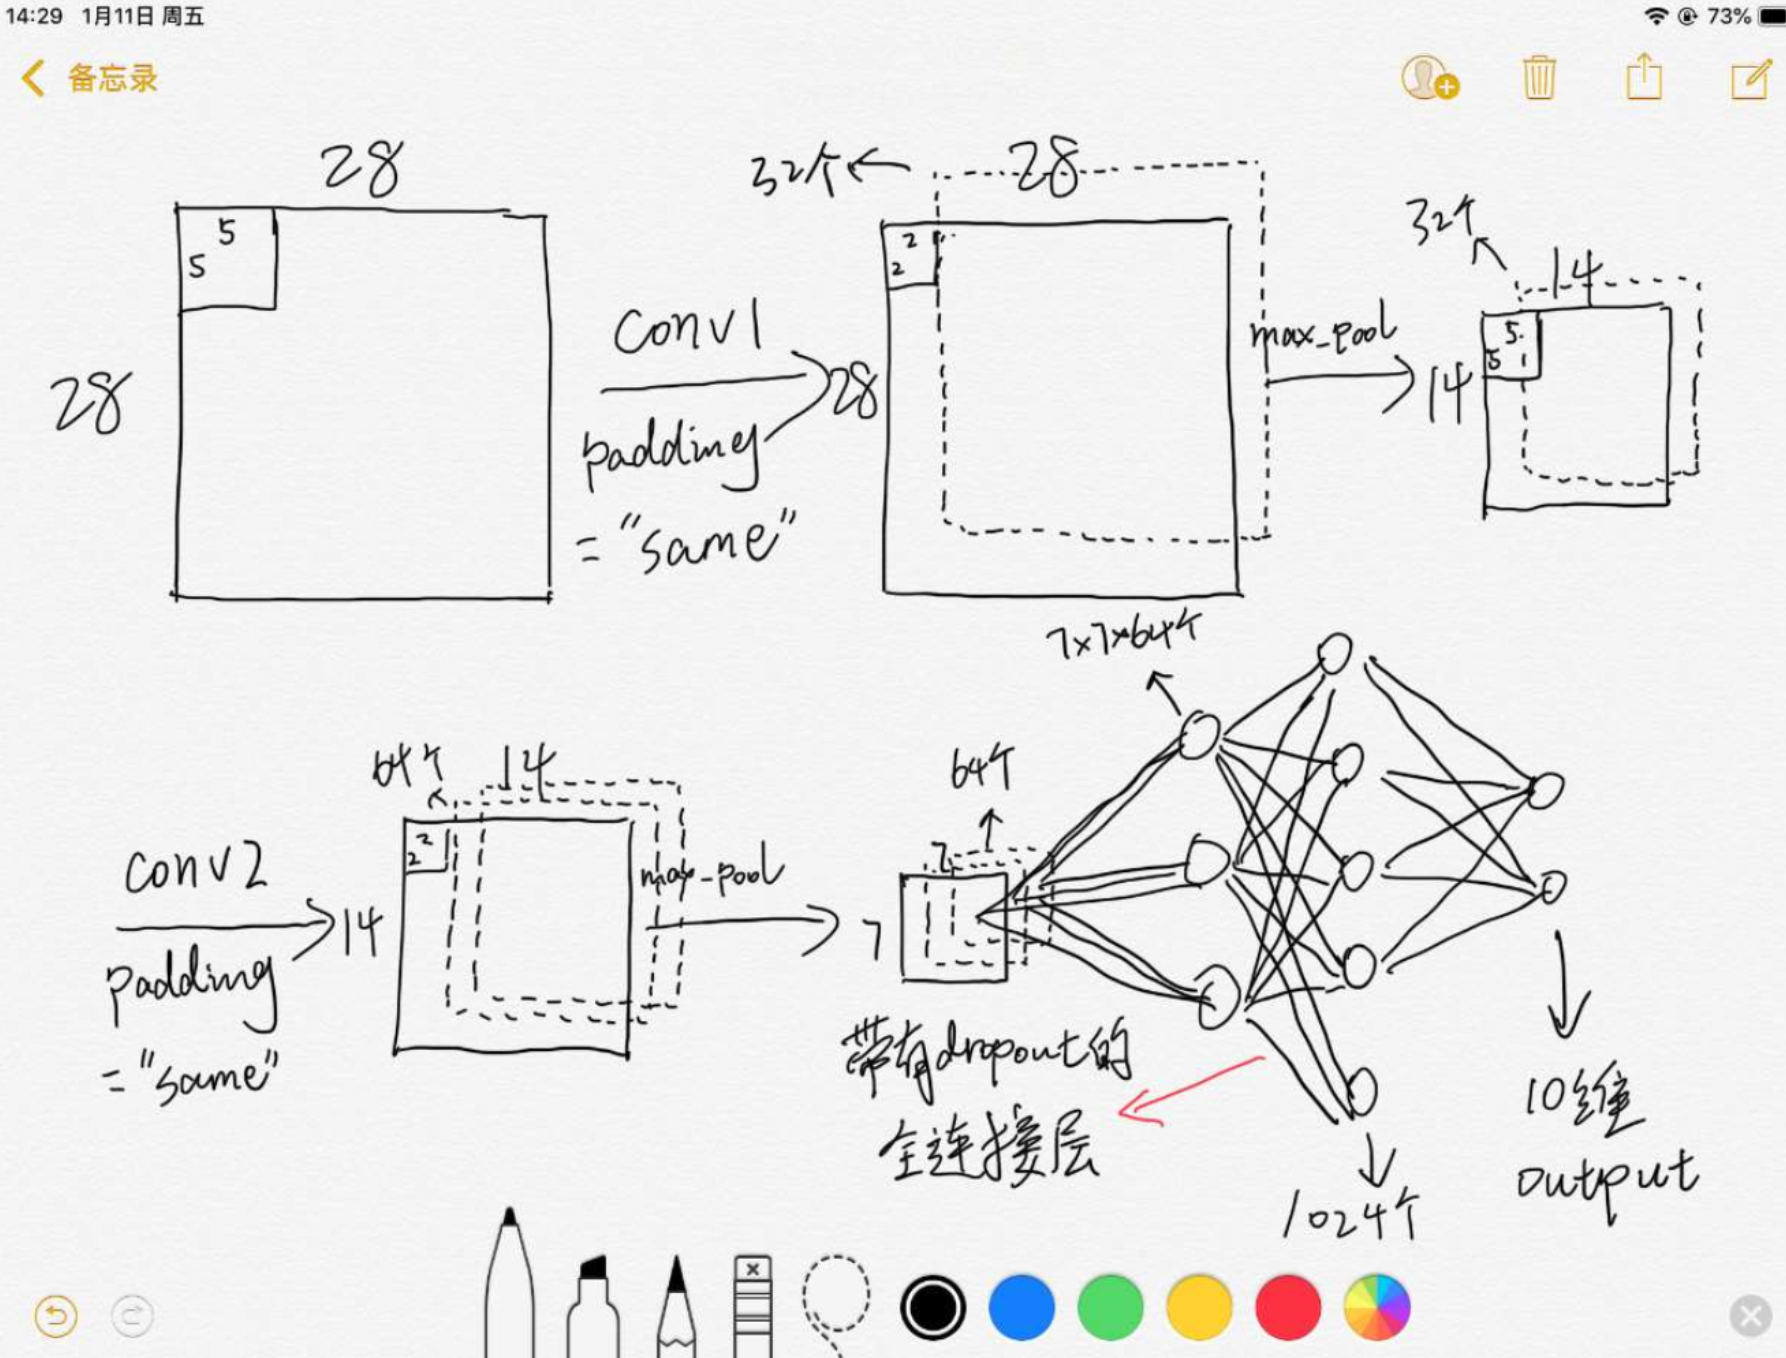 14:29 1月11日 周五
73%
备忘录
28
5
5
28
conv1
padding
= "same"
32个
28
2
2
28
max_pool
32个
14
5
5
14
conv2
padding
= "same"
64个
14
2
2
14
max_pool
64个
7
7
7x7x64个
带有dropout的
全连接层
1024个
10维
output